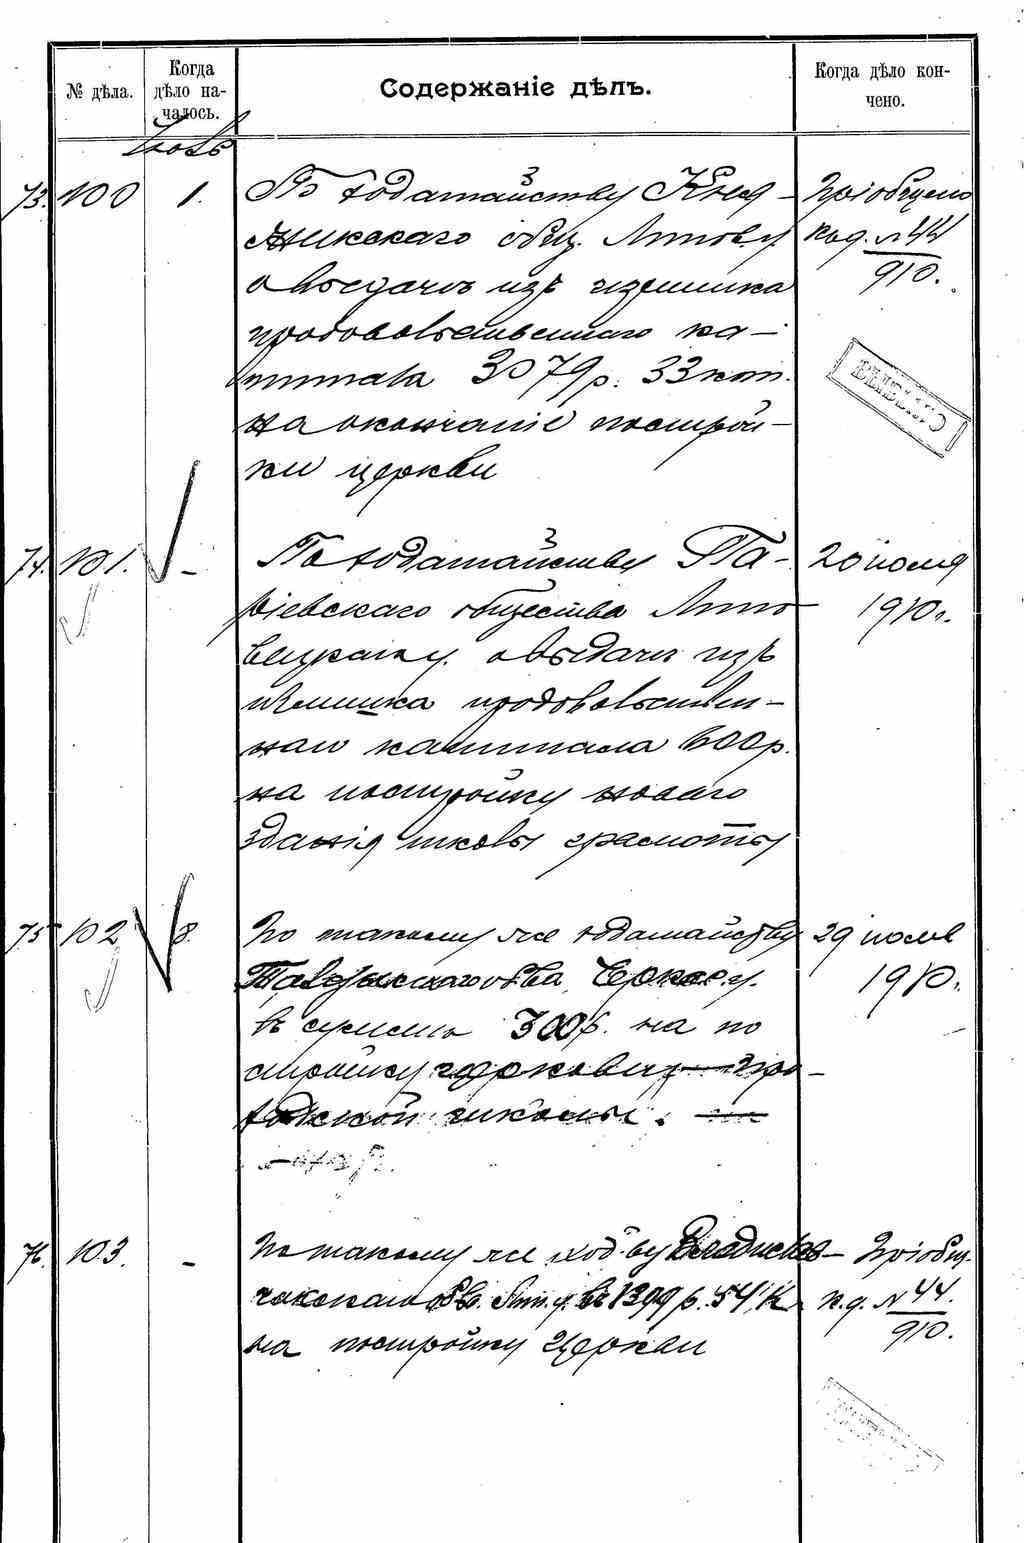 № дѣла.
Когда
дѣло на-
чалось.
Содержаніе дѣлъ.
Когда дѣло кон-
чено.
73. 100 1. По ходатайству Кня-
жикскаго общ.
о выдачѣ изъ излишка
продовольственнаго ка-
питала 3079 р. 33 коп.
на окончаніе построй-
ки церкви
Пріобщено
къ д. № 44
910.
74. 101. - По ходатайству Па-
ріевскаго общества Липо-
вецкаго у. о выдачѣ изъ
излишка продовольствен-
наго капитала 600 р.
на постройку новаго
зданія школы грамоты
20 іюля
1910 г.
75 102 8. По такому же ходатайству
о-ва, Черкас. у.
въ суммѣ 300 р. на по
стройку церковно-при-
ходской школы.
29 іюля
1910.
76. 103. - По такому же ход-ву
об-ва Лип. у. въ 1399 р. 54 к.
на постройку церкви
Пріобщ.
к. д. № 44.
910.